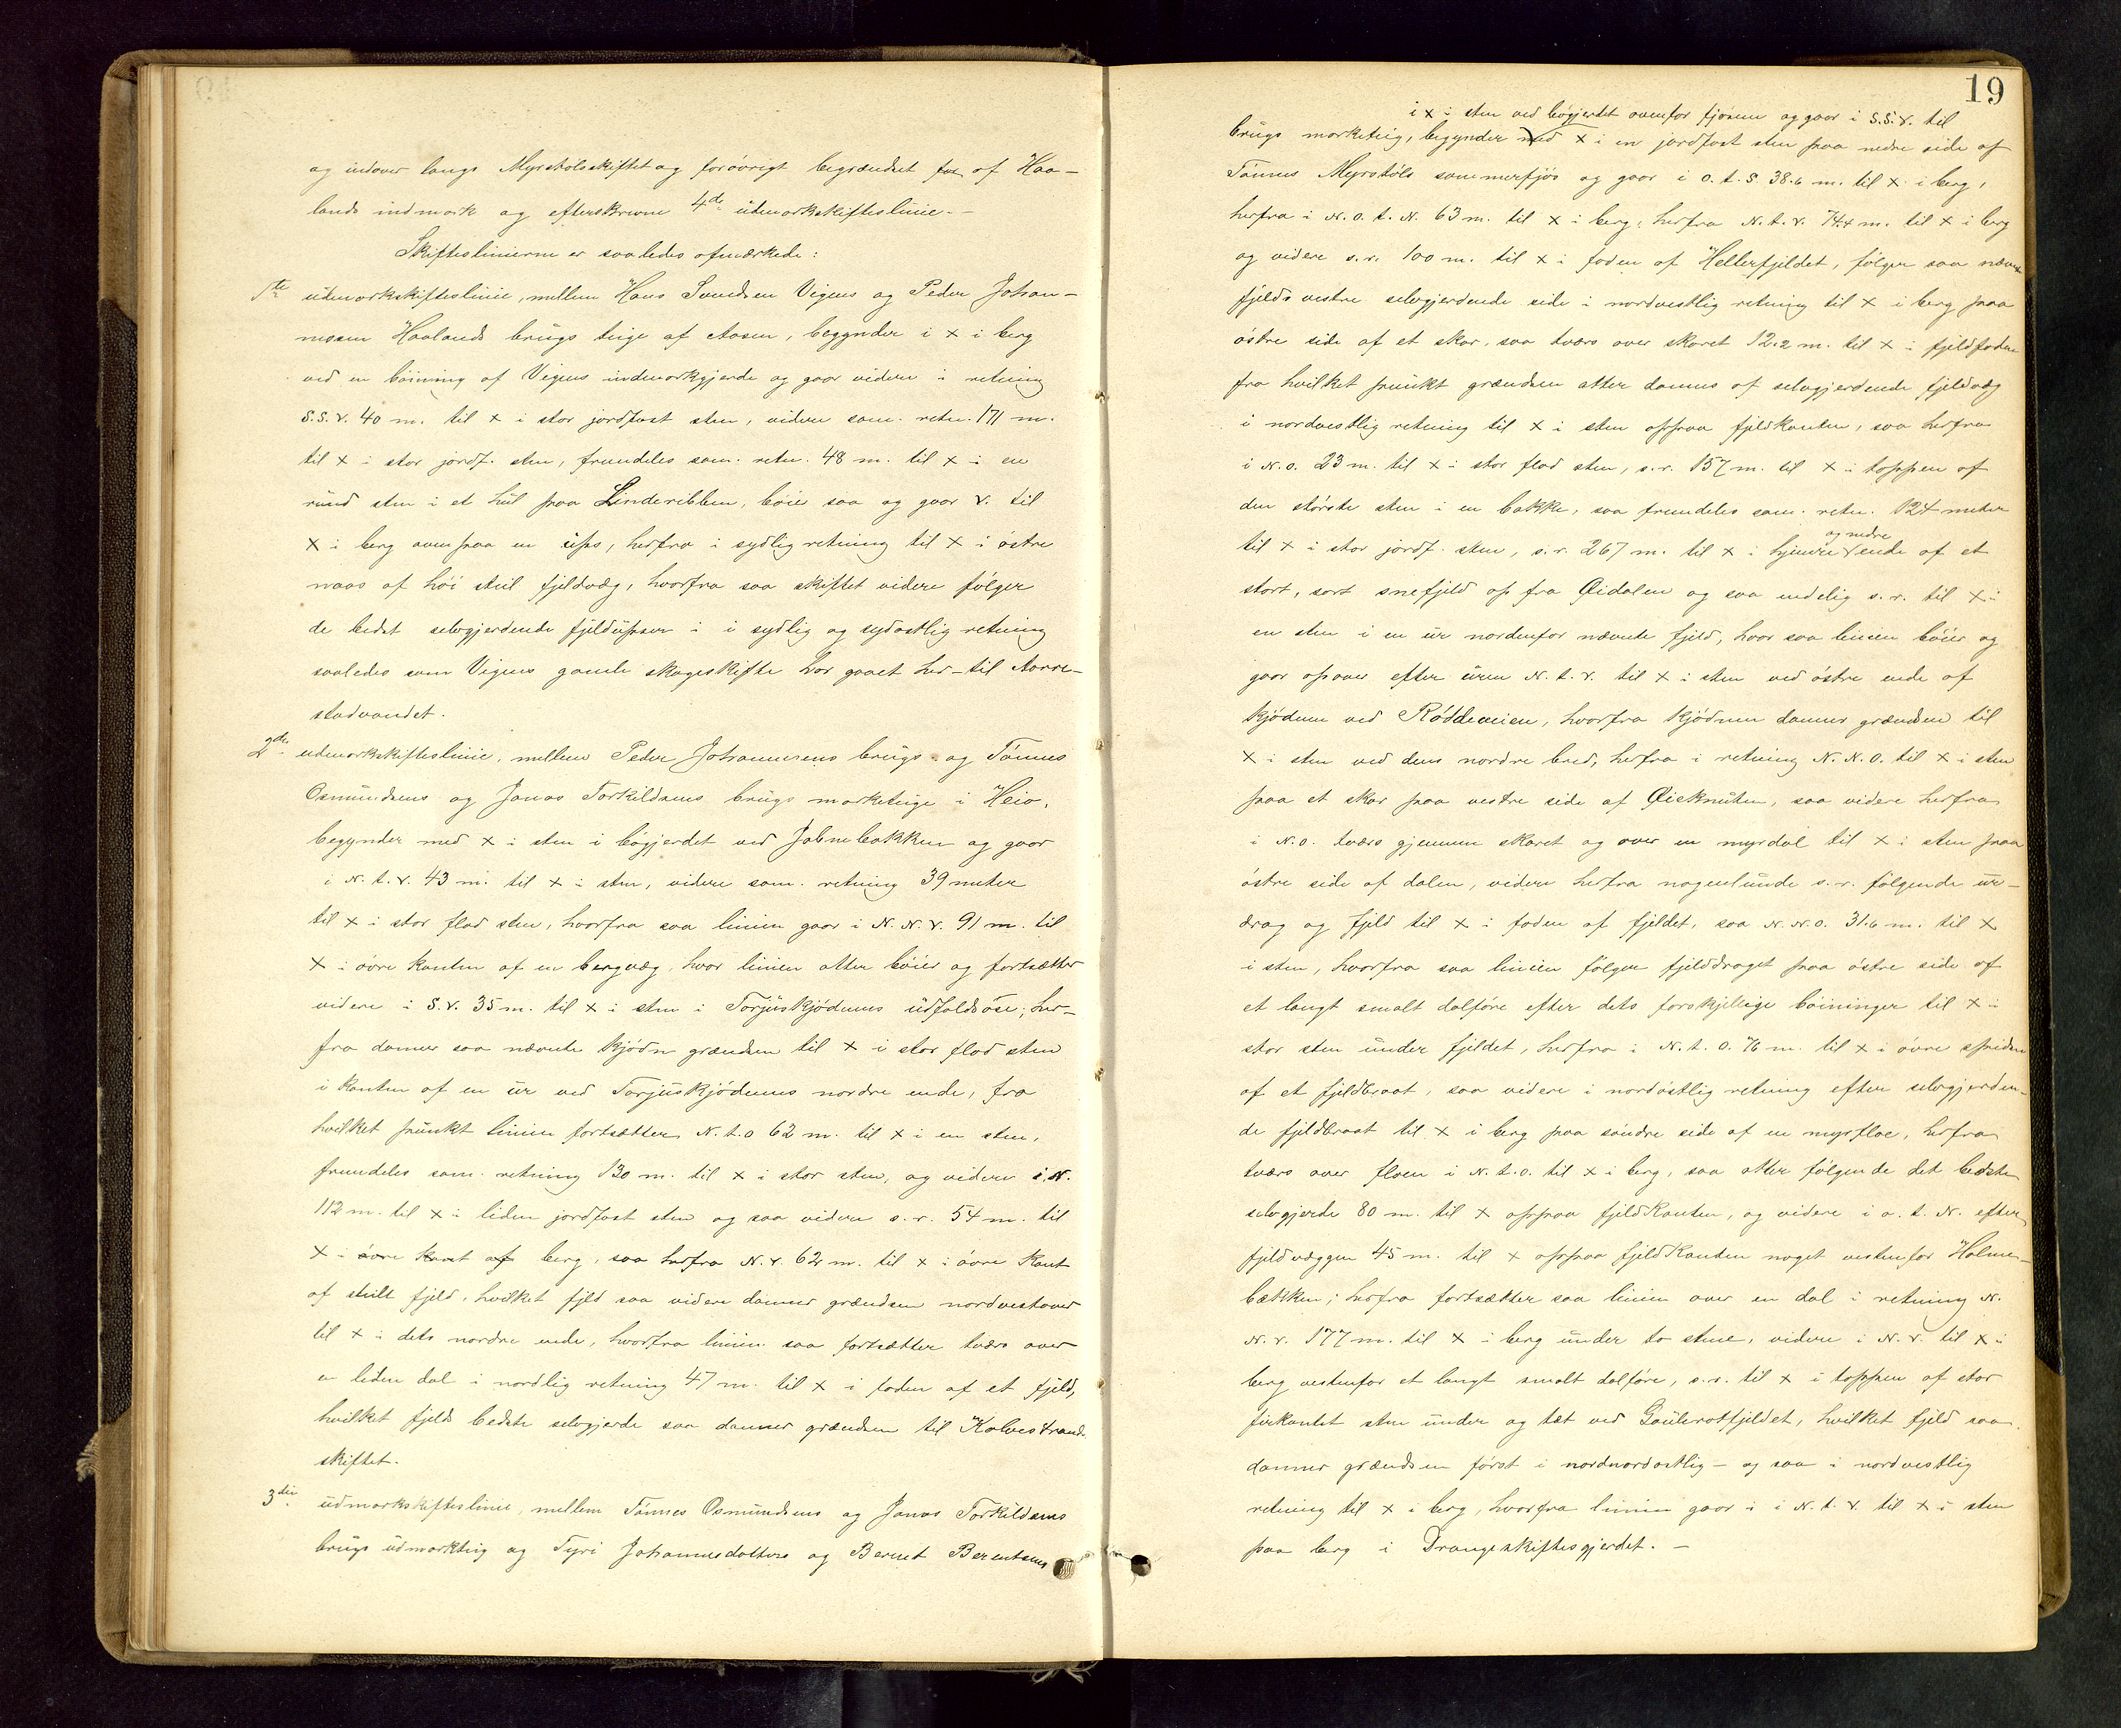 og indover langs Myrstølsskiftet og forøvrigt begrændset af Haa-
lands indmark og efterskrevne 4de udmarkskifteslinie. -
Skifteslinierne er saaledes afmærkede:
1te udmarkskifteslinie, mellem Hans Svendsen Vigens og Peder Johan-
nessen Haalands brugs teige af Aasen, begynder i x i berg
ved en bøining af Vigens indmarkgjerde og gaar videre i retning
S.S.V. 40 m. til x i stor jordfast sten, videre sam. retn. 171 m.
til x i stor jordf. sten, fremdeles sam. retn. 48 m. til x i en
rund sten i et hul paa Linderibben, bøier saa og gaar V. til
x i berg ovenpaa en ups, herfra i sydlig retning til x i østre
naas af høi steil fjeldvæg, hvorfra saa skiftet videre følger
de bedst selvgjerdende fjeldupser i i sydlig og sydostlig retning
saaledes som Vigens gamle skogeskifte har gaaet her - til Aarre-
stadvandet.
2det udmarkskifteslinie, mellem Peder Johannesens brugs og Tønnes
Osmundsens og Jonas Torkildsens brugs marketeige i Heia,
begynder med x i sten i bøgjerdet ved Jabnebakken og gaar
i N.t.V. 43 m. til x i sten, videre sam. retning 39 meter
til x i stor flad sten, hvorfra saa linien gaar i N.N.V. 91 m. til
x i øvre kanten af en bergvæg, hvor linien atter bøier og fortsætter
videre i S.V. 35 m. til x i sten i Torjuskjødnens udfaldsøse; her-
fra danner saa nævnte kjødn grændsen til x i stor flad sten
i kanten af en ur ved Torjuskjødnens nordre ende, fra
hvilket punkt linien fortsætter N.t.O 62 m. til x i en sten,
fremdeles sam. retning 130 m. til x i stor sten, og videre i N.
112 m. til x i liden jordfast sten og saa videre s.r. 54 m. til
x i øvre kant af berg, saa herfra N.V. 62 m. til x i øvre kant
af steilt fjeld, hvilket fjeld saa videre danner grændsen nordvestover
til x i dets nordre ende, hvorfra linien saa fortsætter tværs over
en liden dal i nordlig retning 47 m. til x i foden af et fjeld,
hvilket fjelds bedste selvgjerde saa danner grændsen til Kalvestrand-
skiftet.
3die udmarkskifteslinie, mellem Tønnes Osmundsens og Jonas Torkildsens
brugs udmarkteig og Tyri Johannesdatters og Bernt Berentsens
19
i x i sten ved bøgjerdet ovenfor fjøsen og gaar i S.S.V. til
brugs marketeig, begynder med x i en jordfast sten paa nedre side af
Tønnes Myrstøls sommerfjøs og gaar i O.t.S. 38.6 m. til x i berg,
herfra i N.O.t.N. 63 m. til x i berg, herfra N.t.V. 74.4 m. til x i berg
og videre s.r. 100 m. til x i foden af Hellerfjeldet, følger saa nævnte
fjelds vestre selvgjerdende side i nordvestlig retning til x i berg paa
østre side af et skar, saa tværs over skaret 12.2 m. til x i fjeldfoden
fra hvilket punkt grændsen atter dannes af selvgjerdende fjeldvæg
i nordvestlig retning til x i sten oppaa fjeldkanten, saa herfra
i N.O. 23 m. til x i stor flad sten, s.r. 157 m. til x i toppen af
den største sten i en bakke, saa fremdeles sam. retn. 124 meter
og nedre
til x i stor jordf. sten, s.r. 267 m. til x i hjørne ende af et
stort, sort snefjeld op fra Øidalen og saa endelig s.r. til x i
en sten i en ur nordenfor nævnte fjeld, hvor saa linien bøier og
gaar opover efter uren N.t.V. til x i sten ved østre ende af
kjødnen ved Røddeveien, hvorfra kjødnen danner grændsen til
x i sten ved dens nordre bred, herfra i retning N.N.O. til x i sten
paa et skar paa vestre side af Øieknuten, saa videre herfra
i N.O. tværs gjennem skaret og over en myrdal til x i sten paa
østre side af dalen, videre herfra nogenlunde s.r. følgende ur-
drag og fjeld til x i foden af fjeldet, saa N.N.O. 31.6 m. til x
i sten, hvorfra saa linien følger fjelddraget paa østre side af
et langt smalt dalføre efter dets forskjellige bøininger til x i
stor sten under fjeldet, herfra i N.t.O. 76 m. til x i øvre spidsen
af et fjeldbraat, saa videre i nordøstlig retning efter selvgjerden-
de fjeldbraat til x i berg paa søndre side af en myrfloe, herfra
tværs over floen i N.t.O. til x i berg, saa atter følgende det bedste
selvgjerde 80 m. til x oppaa fjeldkanten, og videre i O.t.N. efter
fjeldvæggen 45 m. til x oppaa fjeldkanten noget vestenfor Holme-
bækken; herfra fortsætter saa linien over en dal i retning N.
N.V. 177 m. til x i berg under to stene, videre i N.V. til x i
berg vestenfor et langt smalt dalføre, s.r. til x i toppen af stor
firkantet sten under og tæt ved Gaulerotfjeldet, hvilket fjeld saa
danner grændsen først i nordnordostlig - og saa i nordvestlig
retning til x i berg, hvorfra linien gaar i i N.t.V. til x i sten
paa berg i Drangeskiftesgjerdet. -